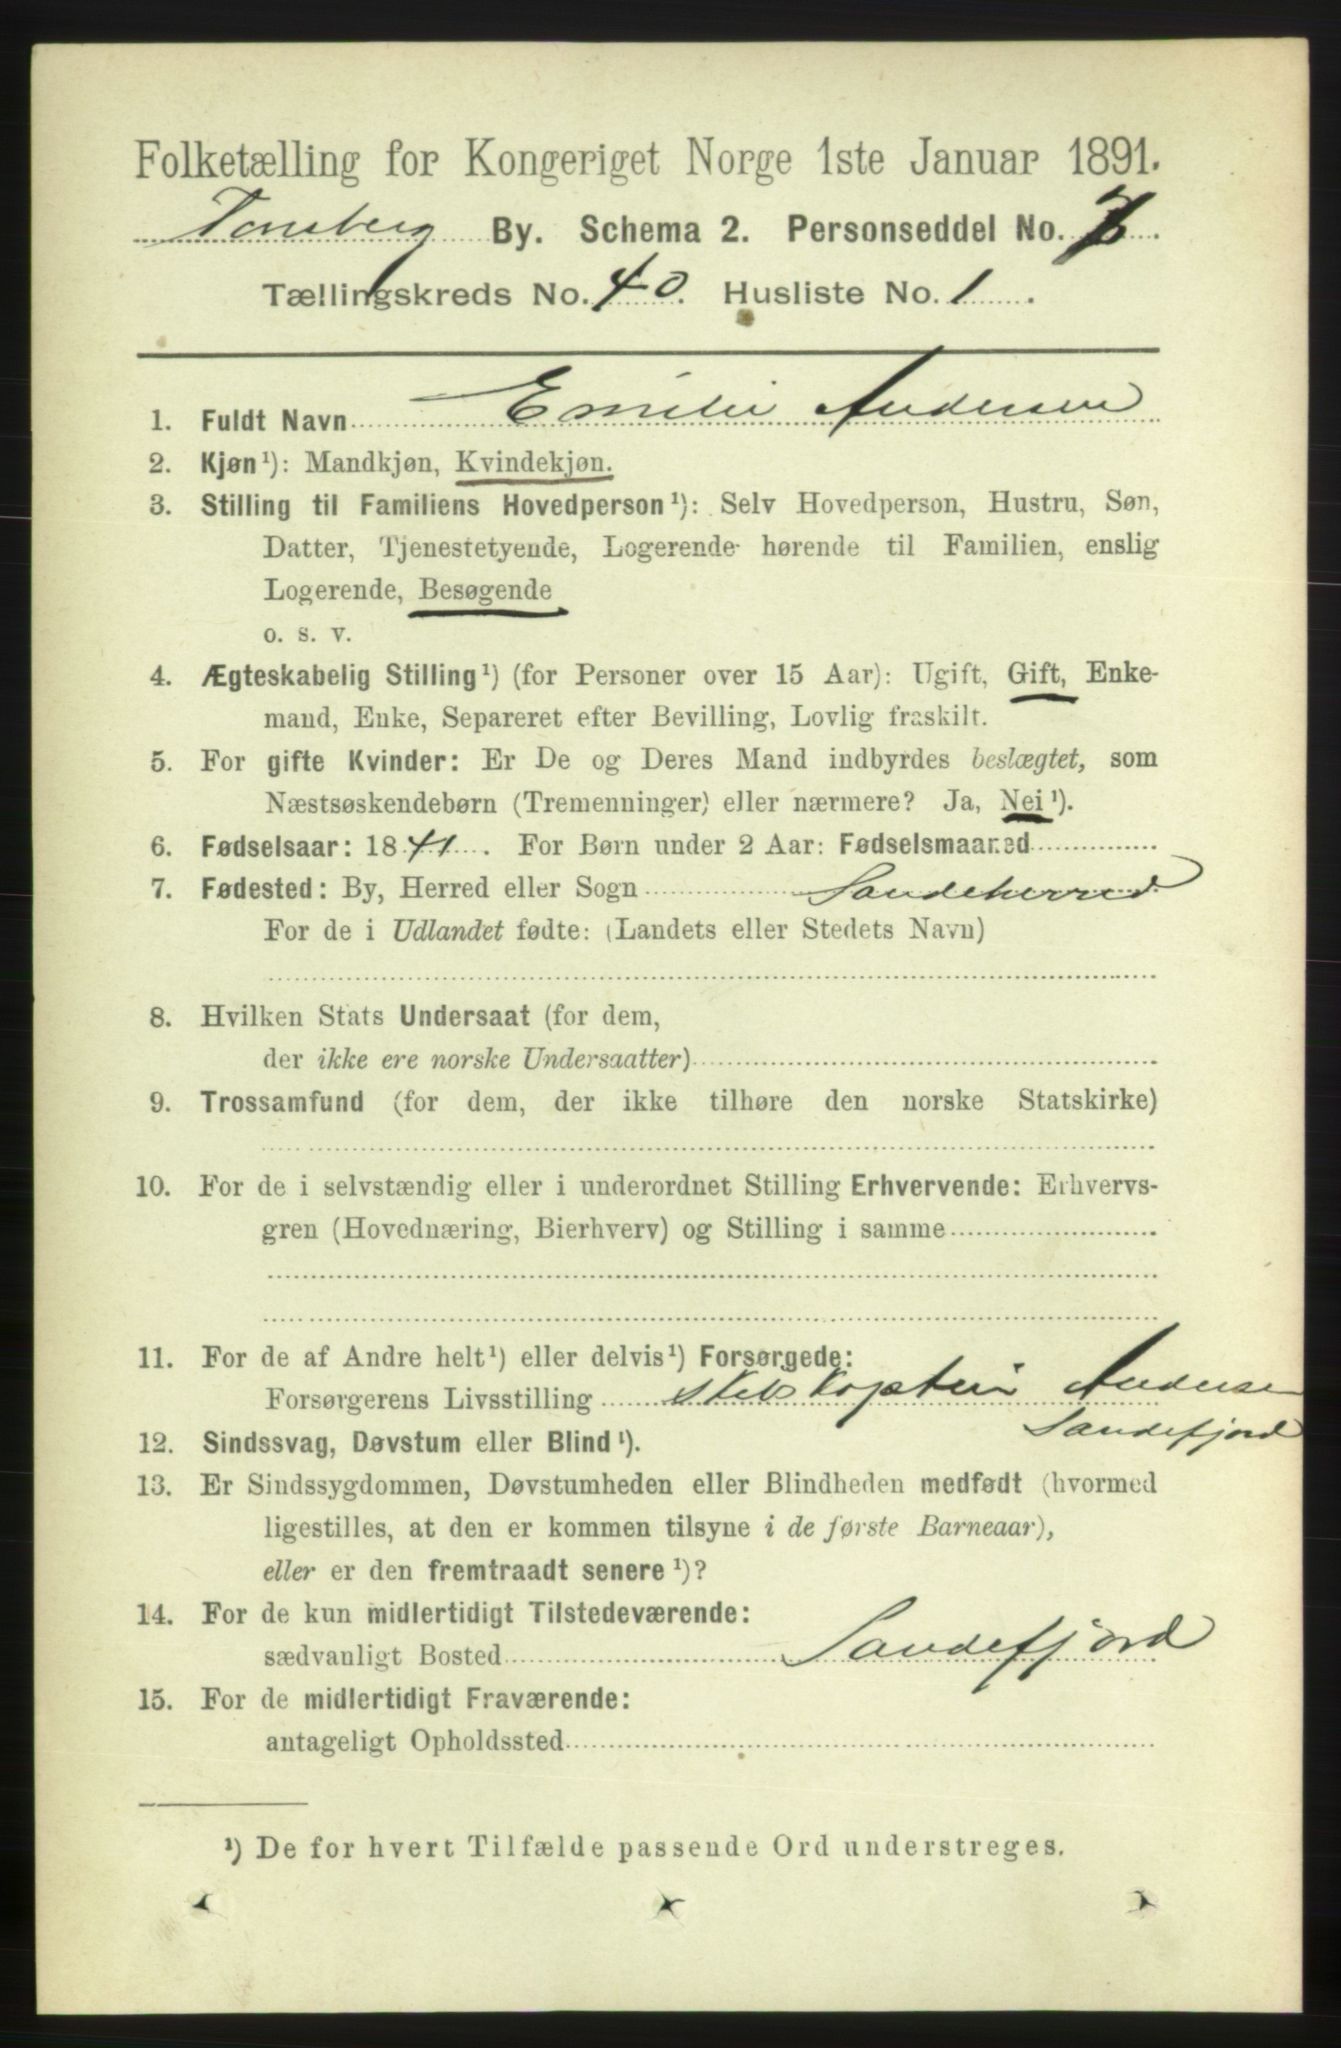 Folketælling for Kongeriget Norge 1ste Januar 1891.
Tønsberg By. Schema 2. Personseddel No.
Tællingskreds No. 40. Husliste No. 1.
1. Fuldt Navn Emilie Andersen
2. Kjøn¹): Mandkjøn, Kvindekjøn.
3. Stilling til Familiens Hovedperson¹): Selv Hovedperson, Hustru, Søn,
Datter, Tjenestetyende, Logerende hørende til Familien, enslig
Logerende, Besøgende
o. s. v.
4. Ægteskabelig Stilling¹) (for Personer over 15 Aar): Ugift, Gift, Enke-
mand, Enke, Separeret efter Bevilling, Lovlig fraskilt.
5. For gifte Kvinder: Er De og Deres Mand indbyrdes beslægtet, som
Næstsøskendebørn (Tremenninger) eller nærmere? Ja, Nei¹).
6. Fødselsaar: 1841. For Børn under 2 Aar: Fødselsmaaned
7. Fødested: By, Herred eller Sogn Sandeherred
For de i Udlandet fødte: (Landets eller Stedets Navn)
8. Hvilken Stats Undersaat (for dem,
der ikke ere norske Undersaatter)
9. Trossamfund (for dem, der ikke tilhøre den norske Statskirke)
10. For de i selvstændig eller i underordnet Stilling Erhvervende: Erhvervs-
gren (Hovednæring, Bierhverv) og Stilling i samme
11. For de af Andre helt¹) eller delvis¹) Forsørgede:
Forsørgerens Livsstilling Skibskaptein Andersen
Sandefjord
12. Sindssvag, Døvstum eller Blind¹).
13. Er Sindssygdommen, Døvstumheden eller Blindheden medfødt (hvormed
ligestilles, at den er kommen tilsyne i de første Barneaar),
eller er den fremtraadt senere¹)?
14. For de kun midlertidigt Tilstedeværende:
sædvanligt Bosted Sandefjord
15. For de midlertidigt Fraværende:
antageligt Opholdssted
¹) De for hvert Tilfælde passende Ord understreges.